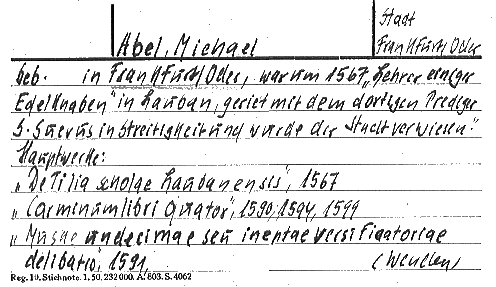 Stadt
Abel, Michael
Frankfurt/Oder
geb. in Frankfurt/Oder, war um 1567 „Lehrer einiger
Edelknaben" in Lauban, geriet mit dem dortigen Prediger
S. Suevus in Streitigkeit und wurde der Stadt verwiesen".
Hauptwerke:
„De Tilia scholae Laubanensis", 1567
„Carminum libri quator", 1590, 1594, 1599
„Musae undecimae seu ineptae versificatoriae
delibatio", 1591.
(Wendlen)
Reg. 10. Stichnote. 1. 50. 232000. A. 803. S. 4062